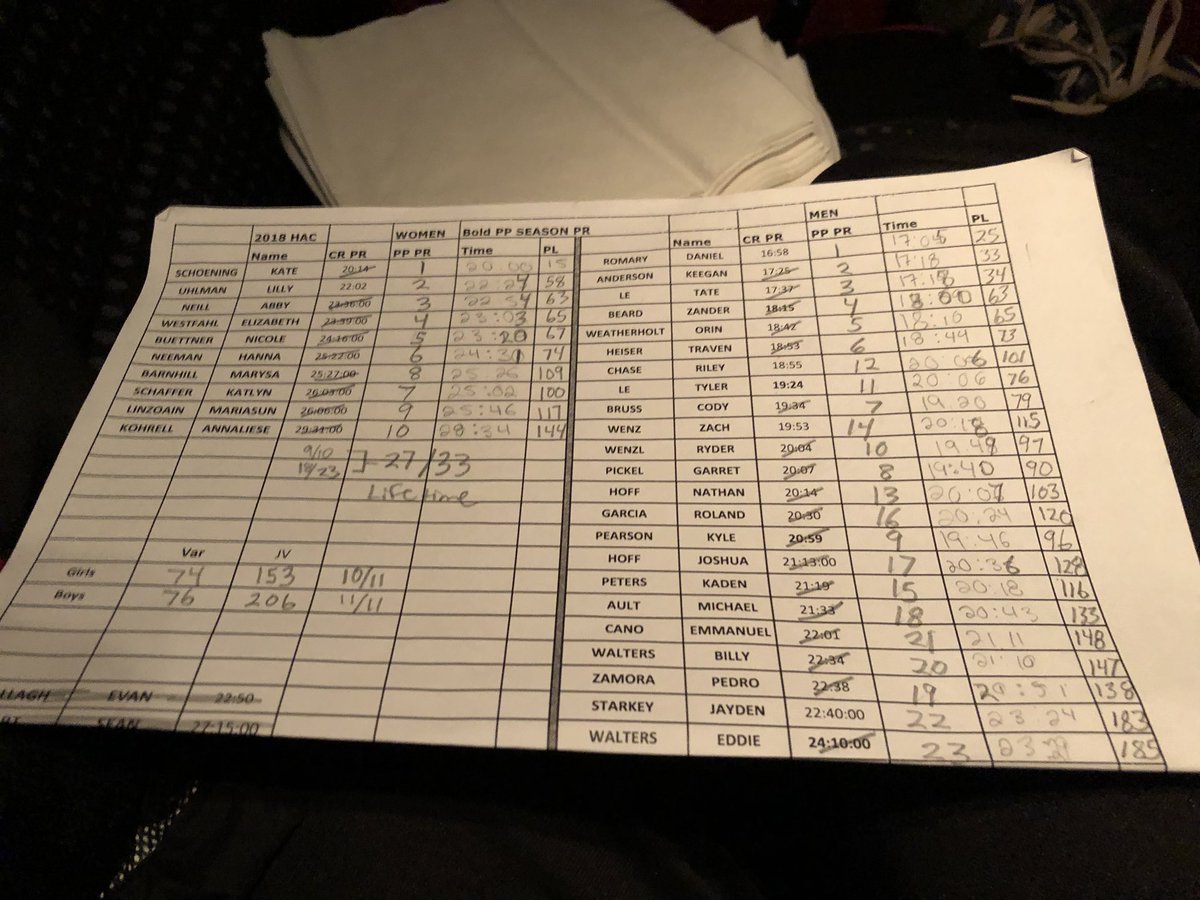 2018 HAC WOMEN Bold PP SEASON PR
Name CR PR PP PR Time PL
SCHOENING KATE 20:14 1 20:00 15
UHLMAN LILLY 22:02 2 22:24 58
NEILL ABBY 23:36:00 3 22:54 63
WESTFAHL ELIZABETH 23:59:00 4 23:03 65
BUETTNER NICOLE 24:16:00 5 23:20 67
NEEMAN HANNA 25:22:00 6 24:31 74
BARNHILL MARYSA 25:27:00 8 25:26 109
SCHAFFER KATLYN 26:03:00 7 25:02 100
LINZOAIN MARIASUN 26:06:00 9 25:46 117
KOHRELL ANNALIESE 29:31:00 10 28:34 144
9/10
18/23 27/33
Lifetime
Var JV
Girls 74 153 10/11
Boys 76 206 11/11
LLAGH EVAN 22:50
SEAN 27:15:00
MEN
Name CR PR PP PR Time PL
ROMARY DANIEL 16:58 1 17:05 25
ANDERSON KEEGAN 17:25 2 17:18 33
LE TATE 17:37 3 17:18 34
BEARD ZANDER 18:15 4 18:00 63
WEATHERHOLT ORIN 18:42 5 18:10 65
HEISER TRAVEN 18:53 6 18:44 73
CHASE RILEY 18:55 12 20:06 101
LE TYLER 19:24 11 20:06 76
BRUSS CODY 19:34 7 19 20 79
WENZ ZACH 19:53 14 20:18 115
WENZL RYDER 20:04 10 19:48 97
PICKEL GARRET 20:07 8 19:40 90
HOFF NATHAN 20:14 13 20:07 103
GARCIA ROLAND 20:30 16 20:24 120
PEARSON KYLE 20:59 9 19:46 96
HOFF JOSHUA 21:13:00 17 20:36 128
PETERS KADEN 21:19 15 20:18 116
AULT MICHAEL 21:33 18 20:43 133
CANO EMMANUEL 22:01 21 21 11 148
WALTERS BILLY 22:34 20 21:10 147
ZAMORA PEDRO 22:38 19 20:51 138
STARKEY JAYDEN 22:40:00 22 23 24 183
WALTERS EDDIE 24:10:00 23 23 29 185